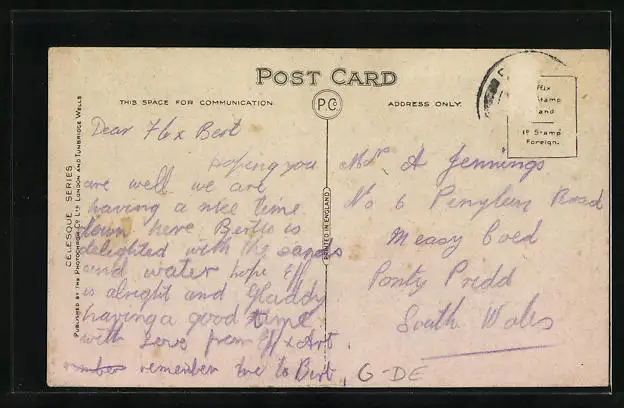 POST CARD
THIS SPACE FOR COMMUNICATION.
ADDRESS ONLY.
CELESQUE SERIES
PUBLISHED BY THE PHOTOCHROM CO. LTD LONDON AND TUNBRIDGE WELLS
PRINTED IN ENGLAND
Stamp
1D Stamp
Foreign.
Dear Flo x Bert
Hoping you
are well we are
having a nice time
down here Bertie is
delighted with the sands
and water hope Eff
is alright and Gladdy
having a good time
with Love from x Art.
remember me to Bert.
Mr A Jennings
No 6 Road
measy Coed
Ponty Pridd
South Wales
G-DE